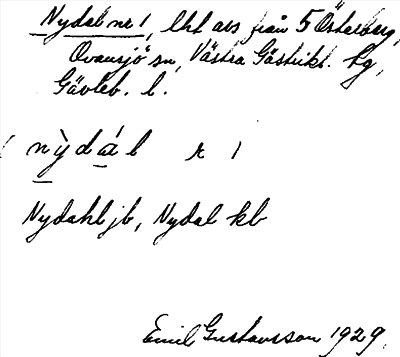 Nydal nr 1, lht avs från 5 Österberg,
Ovansjö sn, Västra Gästrikl. tg,
Gävleb. l.
nỳdál r 1
Nydahl jb, Nydal kb
Emil Gustavsson 1929.